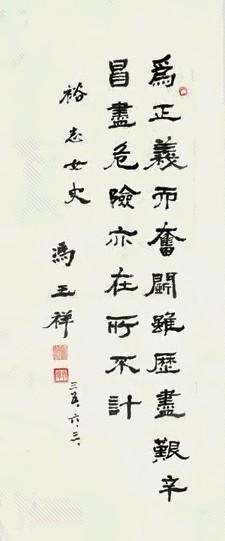 為正義而奮鬭雖歷盡艱辛
昌盡危險亦在所不計
裕志女史
馮玉祥
三五、六、三、